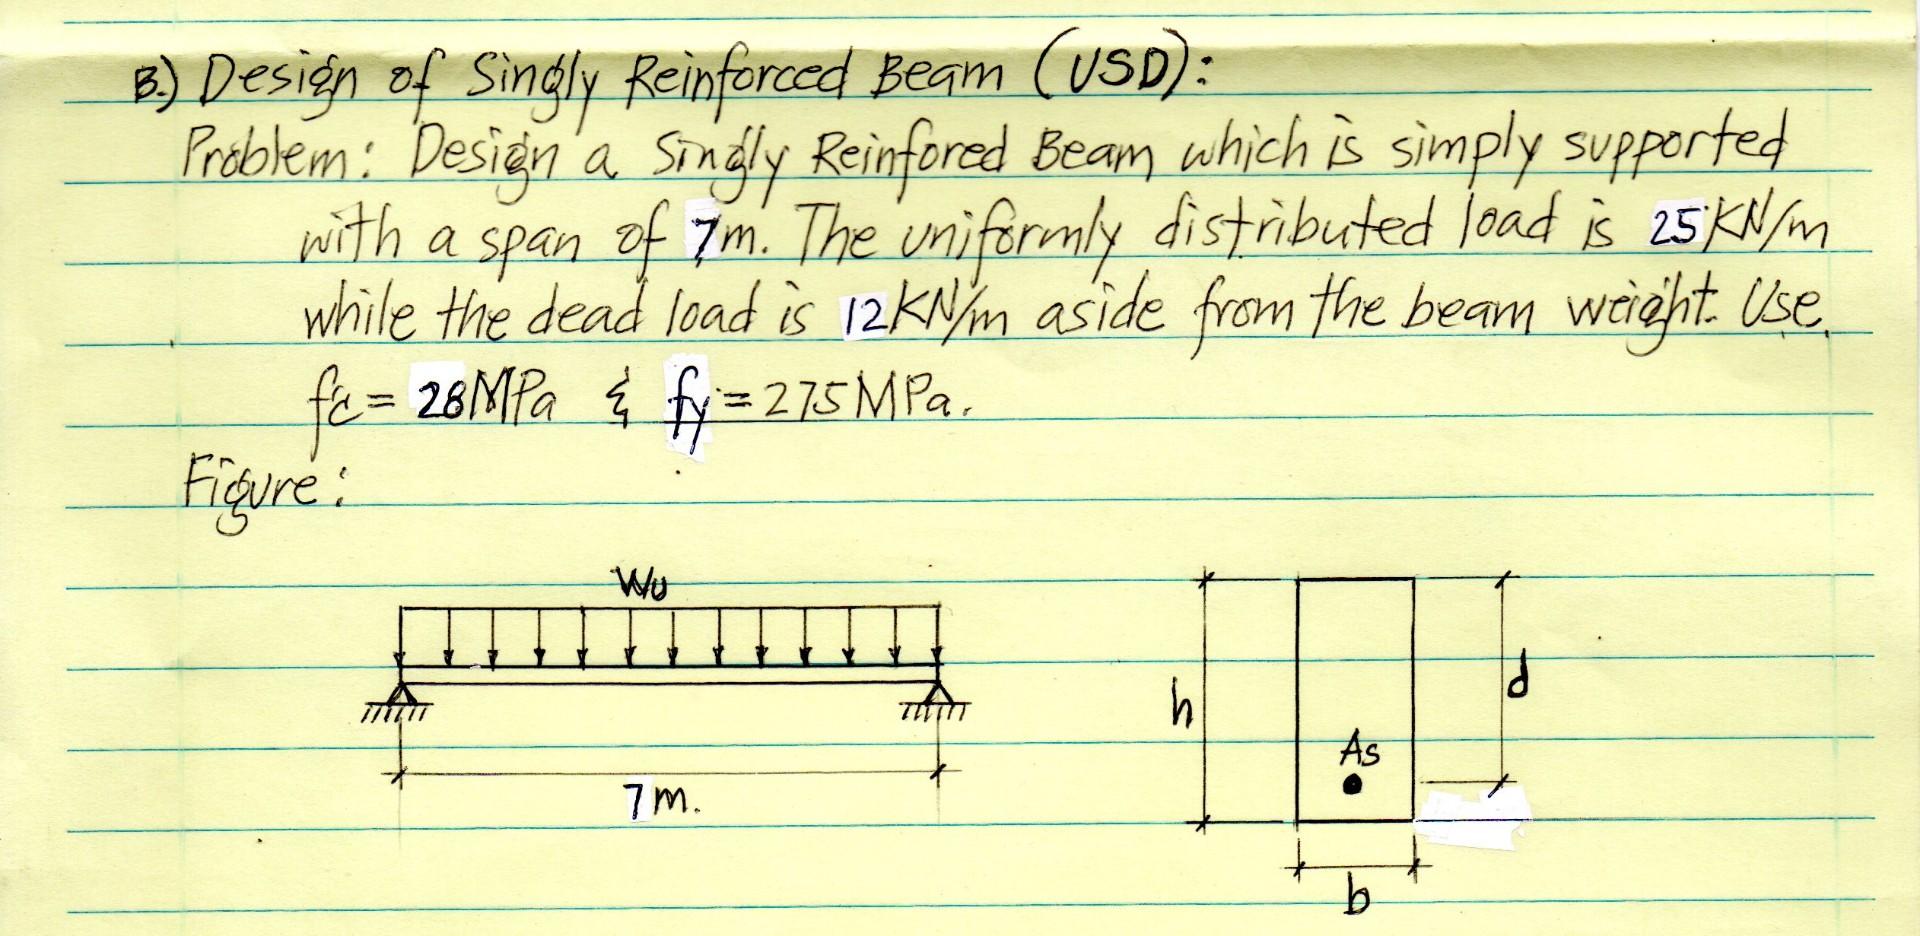 B.) Design of Singly Reinforced Beam (USD):
Problem: Design a Singly Reinfored Beam which is simply supported
with a span of 7m. The uniformly distributed load is 25KN/m
while the dead load is 12KN/m aside from the beam weight. Use
fc = 28MPa & fy = 275MPa.
Figure:
Wu
7m.
h
As
d
b